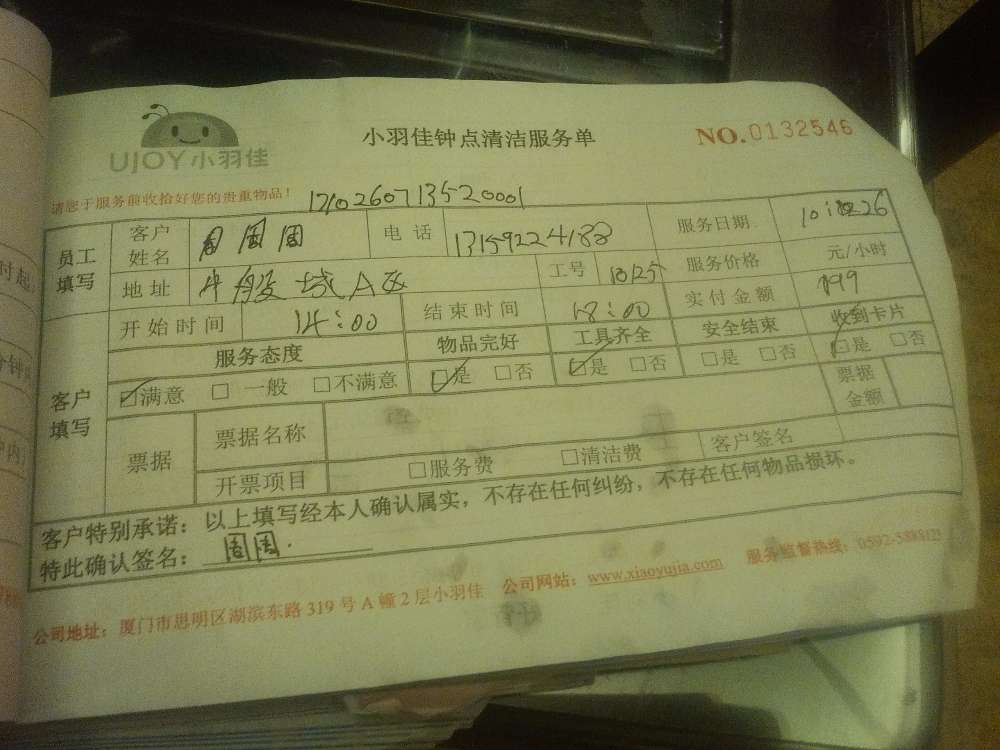 UJOY小羽佳
小羽佳钟点清洁服务单
NO.0132546
请您于服务前收拾好您的贵重物品！
1210260713520001
员工填写 客户姓名 周周周 电话 13159224188 服务日期 10:26
地址 A区 工号 1025 服务价格 元/小时
开始时间 14:00 结束时间 18:00 实付金额 199
客户填写 服务态度 物品完好 工具齐全 安全结束 收到卡片
☑满意 □一般 □不满意 ☑是 □否 ☑是 □否 □是 □否 ☑是 □否
票据 票据名称 票据金额
开票项目 □服务费 □清洁费 客户签名
客户特别承诺：以上填写经本人确认属实，不存在任何纠纷，不存在任何物品损坏。
特此确认签名：周周.
公司地址：厦门市思明区湖滨东路319号A幢2层小羽佳 公司网站：www.xiaoyujia.com 服务监督热线：0592-5888123